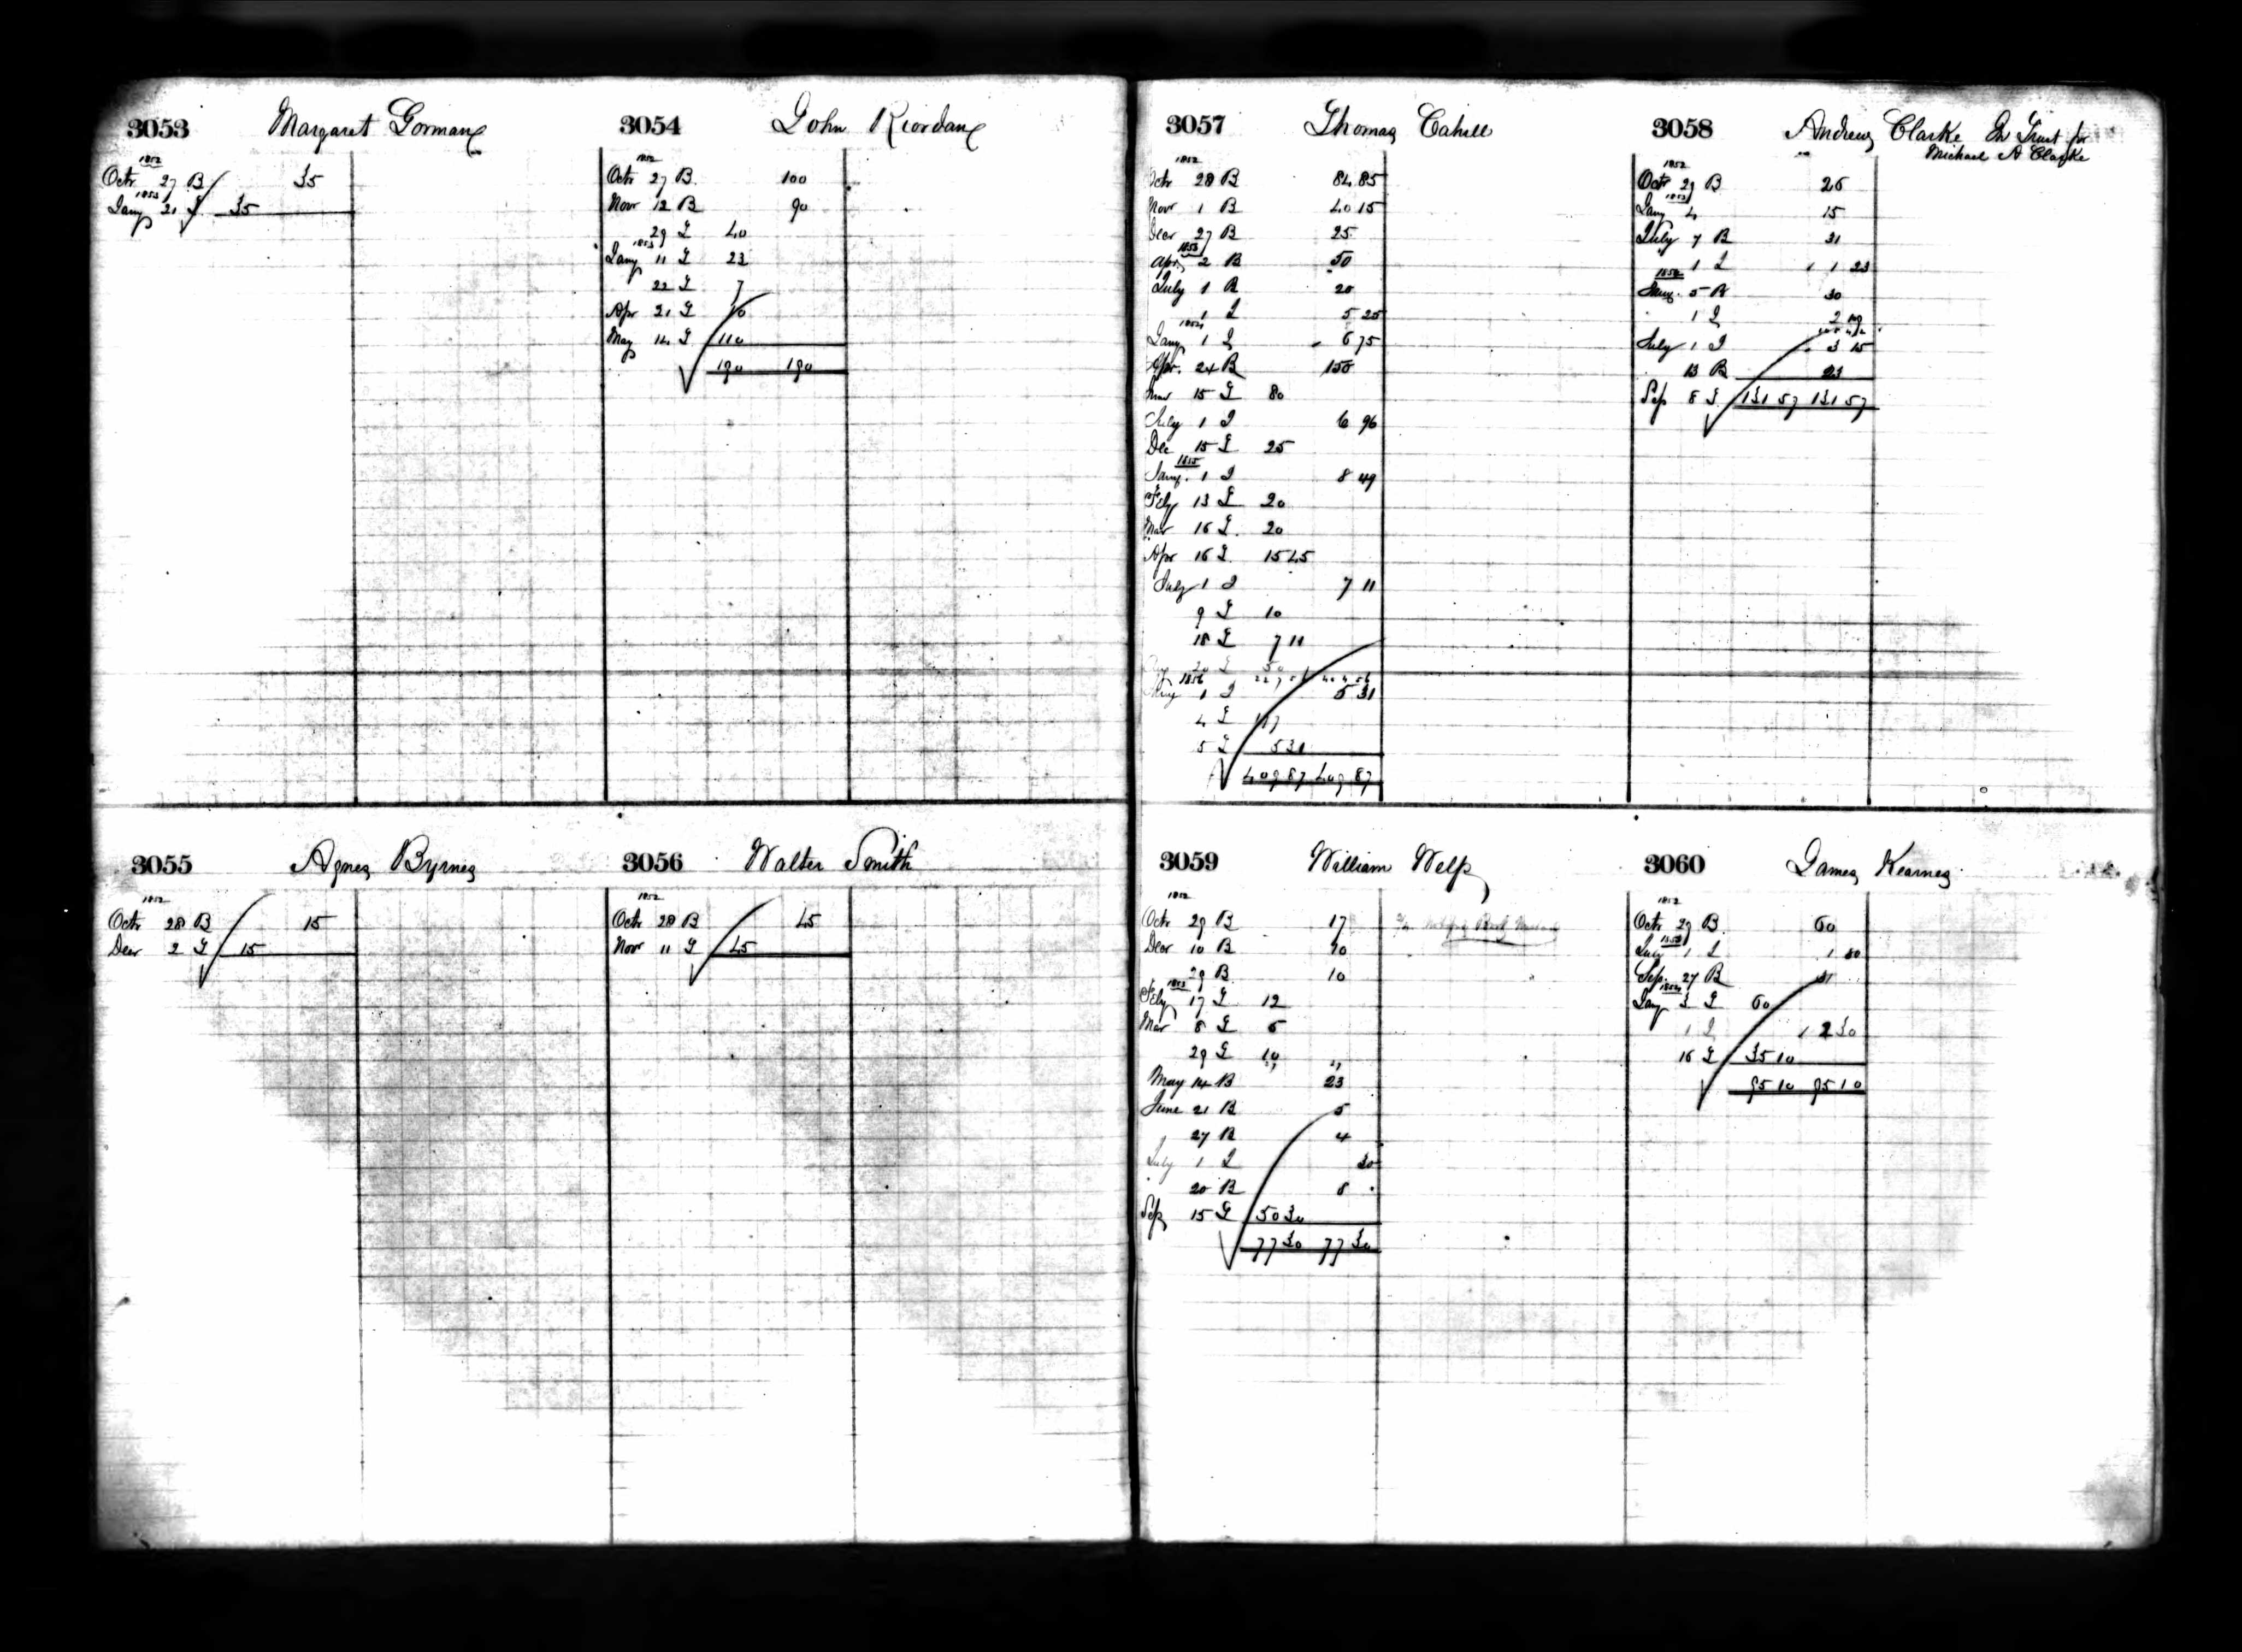 3053 Margaret Gorman
1852
Octr 27 B 35
1853
Jany 21 L 35
3054 John Riordan
1852
Octr 27 B 100
Novr 12 B 90
29 L 40
1853
Jany 11 L 23
22 L 7
Apr 21 L 10
May 14 L 110
190 190
3055 Agnes Byrnes
1852
Octr 28 B 15
Decr 2 L 15
3056 Walter Smith
1852
Octr 28 B 45
Novr 11 L 45
3057 Thomas Cahill
1852
Octr 28 B 84 85
Novr 1 B 40 15
Decr 27 B 25
1853
Apr 2 B 50
July 1 B 20
1 I 5 25
1854
Jany 1 I 6 75
Apr. 24 B 150
15 L 80
July 1 I 6 96
Dec 15 L 25
1855
Jany. 1 I 8 49
Feby 13 L 20
Mar 16 L 20
Apr 16 L 15 45
July 1 I 7 11
9 L 10
18 L 7 11
20 L 50
1856
Jany 1 I 5 31
4 L 177
5 L 5 31
409 87 409 87
3058 Andrew Clarke In Trust for
Michael A Clarke
1852
Octr 29 B 25
1853
Jany 4 15
July 7 B 31
1 I 1 23
1854
Jany. 5 B 30
1 I 2 19
July 1 I 3 15
13 B 23
Sep 8 L 131 57 131 57
3059 William Welp
1852
Octr 29 B 17
Decr 10 B 10
29 B 10
1853
Feby 17 L 12
Mar 8 L 5
29 L 10
May 14 B 23
June 21 B 5
27 B 4
July 1 I 30
20 B 8
Sep 15 L 50 30
77 30 77 30
3060 James Kearney
1852
Octr 29 B 60
1853
July 1 I 1 80
Sep. 27 B 31
1854
Jany 3 L 60
1 I 2 30
16 L 35 10
95 10 95 10